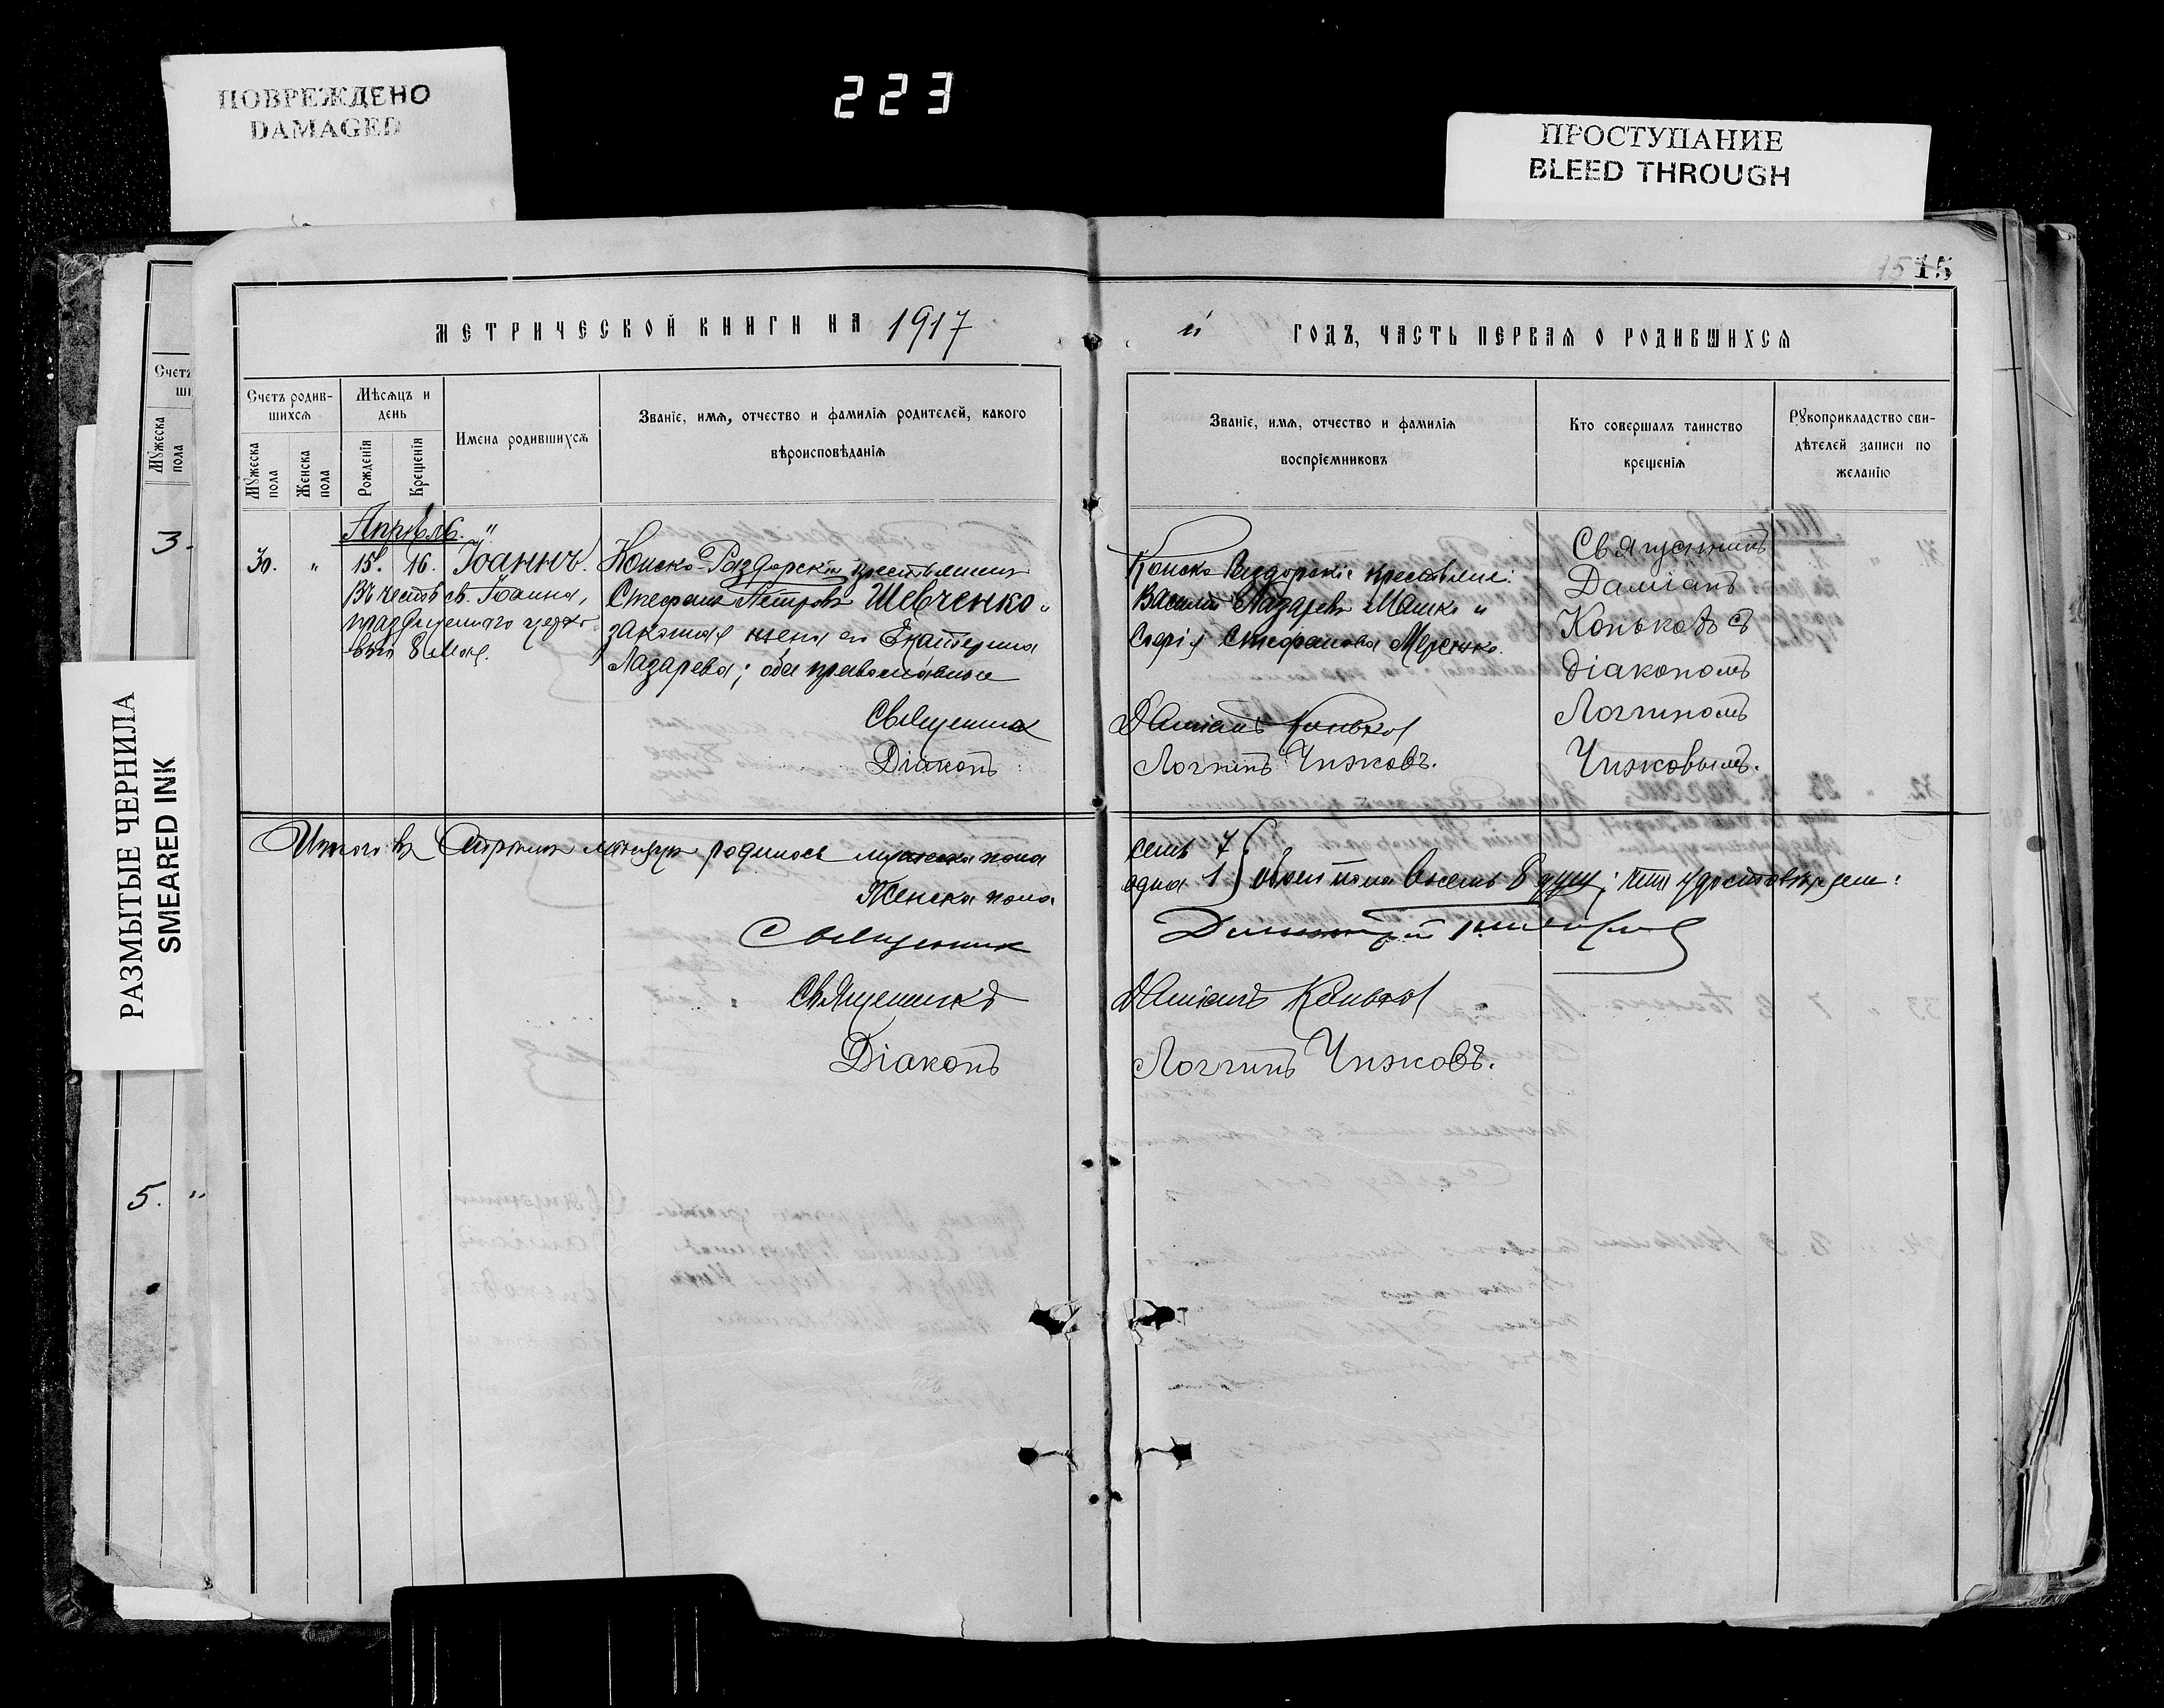 ПОВРЕЖДЕНО
DAMAGED
223
ПРОСТУПАНИЕ
BLEED THROUGH
РАЗМЫТЫЕ ЧЕРНИЛА
SMEARED INK
15 15
МЕТРИЧЕСКОЙ КНИГИ НА 1917 й ГОДЪ, ЧАСТЬ ПЕРВАЯ О РОДИВШИХСЯ
Счетъ родив-
шихся
Мужеска пола
Женска пола
Мѣсяцъ и
день
Рожденія
Крещенія
Имена родившихся
Званіе, имя, отчество и фамилія родителей, какого
вѣроисповѣданія
Званіе, имя, отчество и фамилія
воспріемниковъ
Кто совершалъ таинство
крещенія
Рукоприкладство сви-
дѣтелей записи по
желанію
3.
5. "
Апрѣль "
30. " 15. 16. Іоаннъ.
Въ честь св. Іоанна,
празднуемаго церко-
вію 8 Мая.
Конско-Раздорскій крестьянинъ
Стефанъ Петровъ Шевченко и
законная жена его Екатерина
Лазарева; оба православные
Священникъ
Діаконъ
Конско Раздорскіе крестьяне:
Василій Лазаревъ Машко и
Стефанова
Даміанъ Коньковъ
Логгинъ Чижовъ.
Священникъ
Даміанъ
Коньковъ съ
Діакономъ
Логгиномъ
Чижовымъ.
Итого въ Апрѣлѣ мѣсяцѣ родилось мужеска пола семь 7
Женска пола одна 1 } обоего пола восемь 8 душъ; что удостовѣряемъ:
Священникъ
Священникъ Даміанъ Коньковъ
Діаконъ Логгинъ Чижовъ.